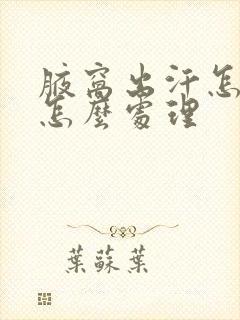 腋窩出汗怎
怎麼處理
葉蘇葉